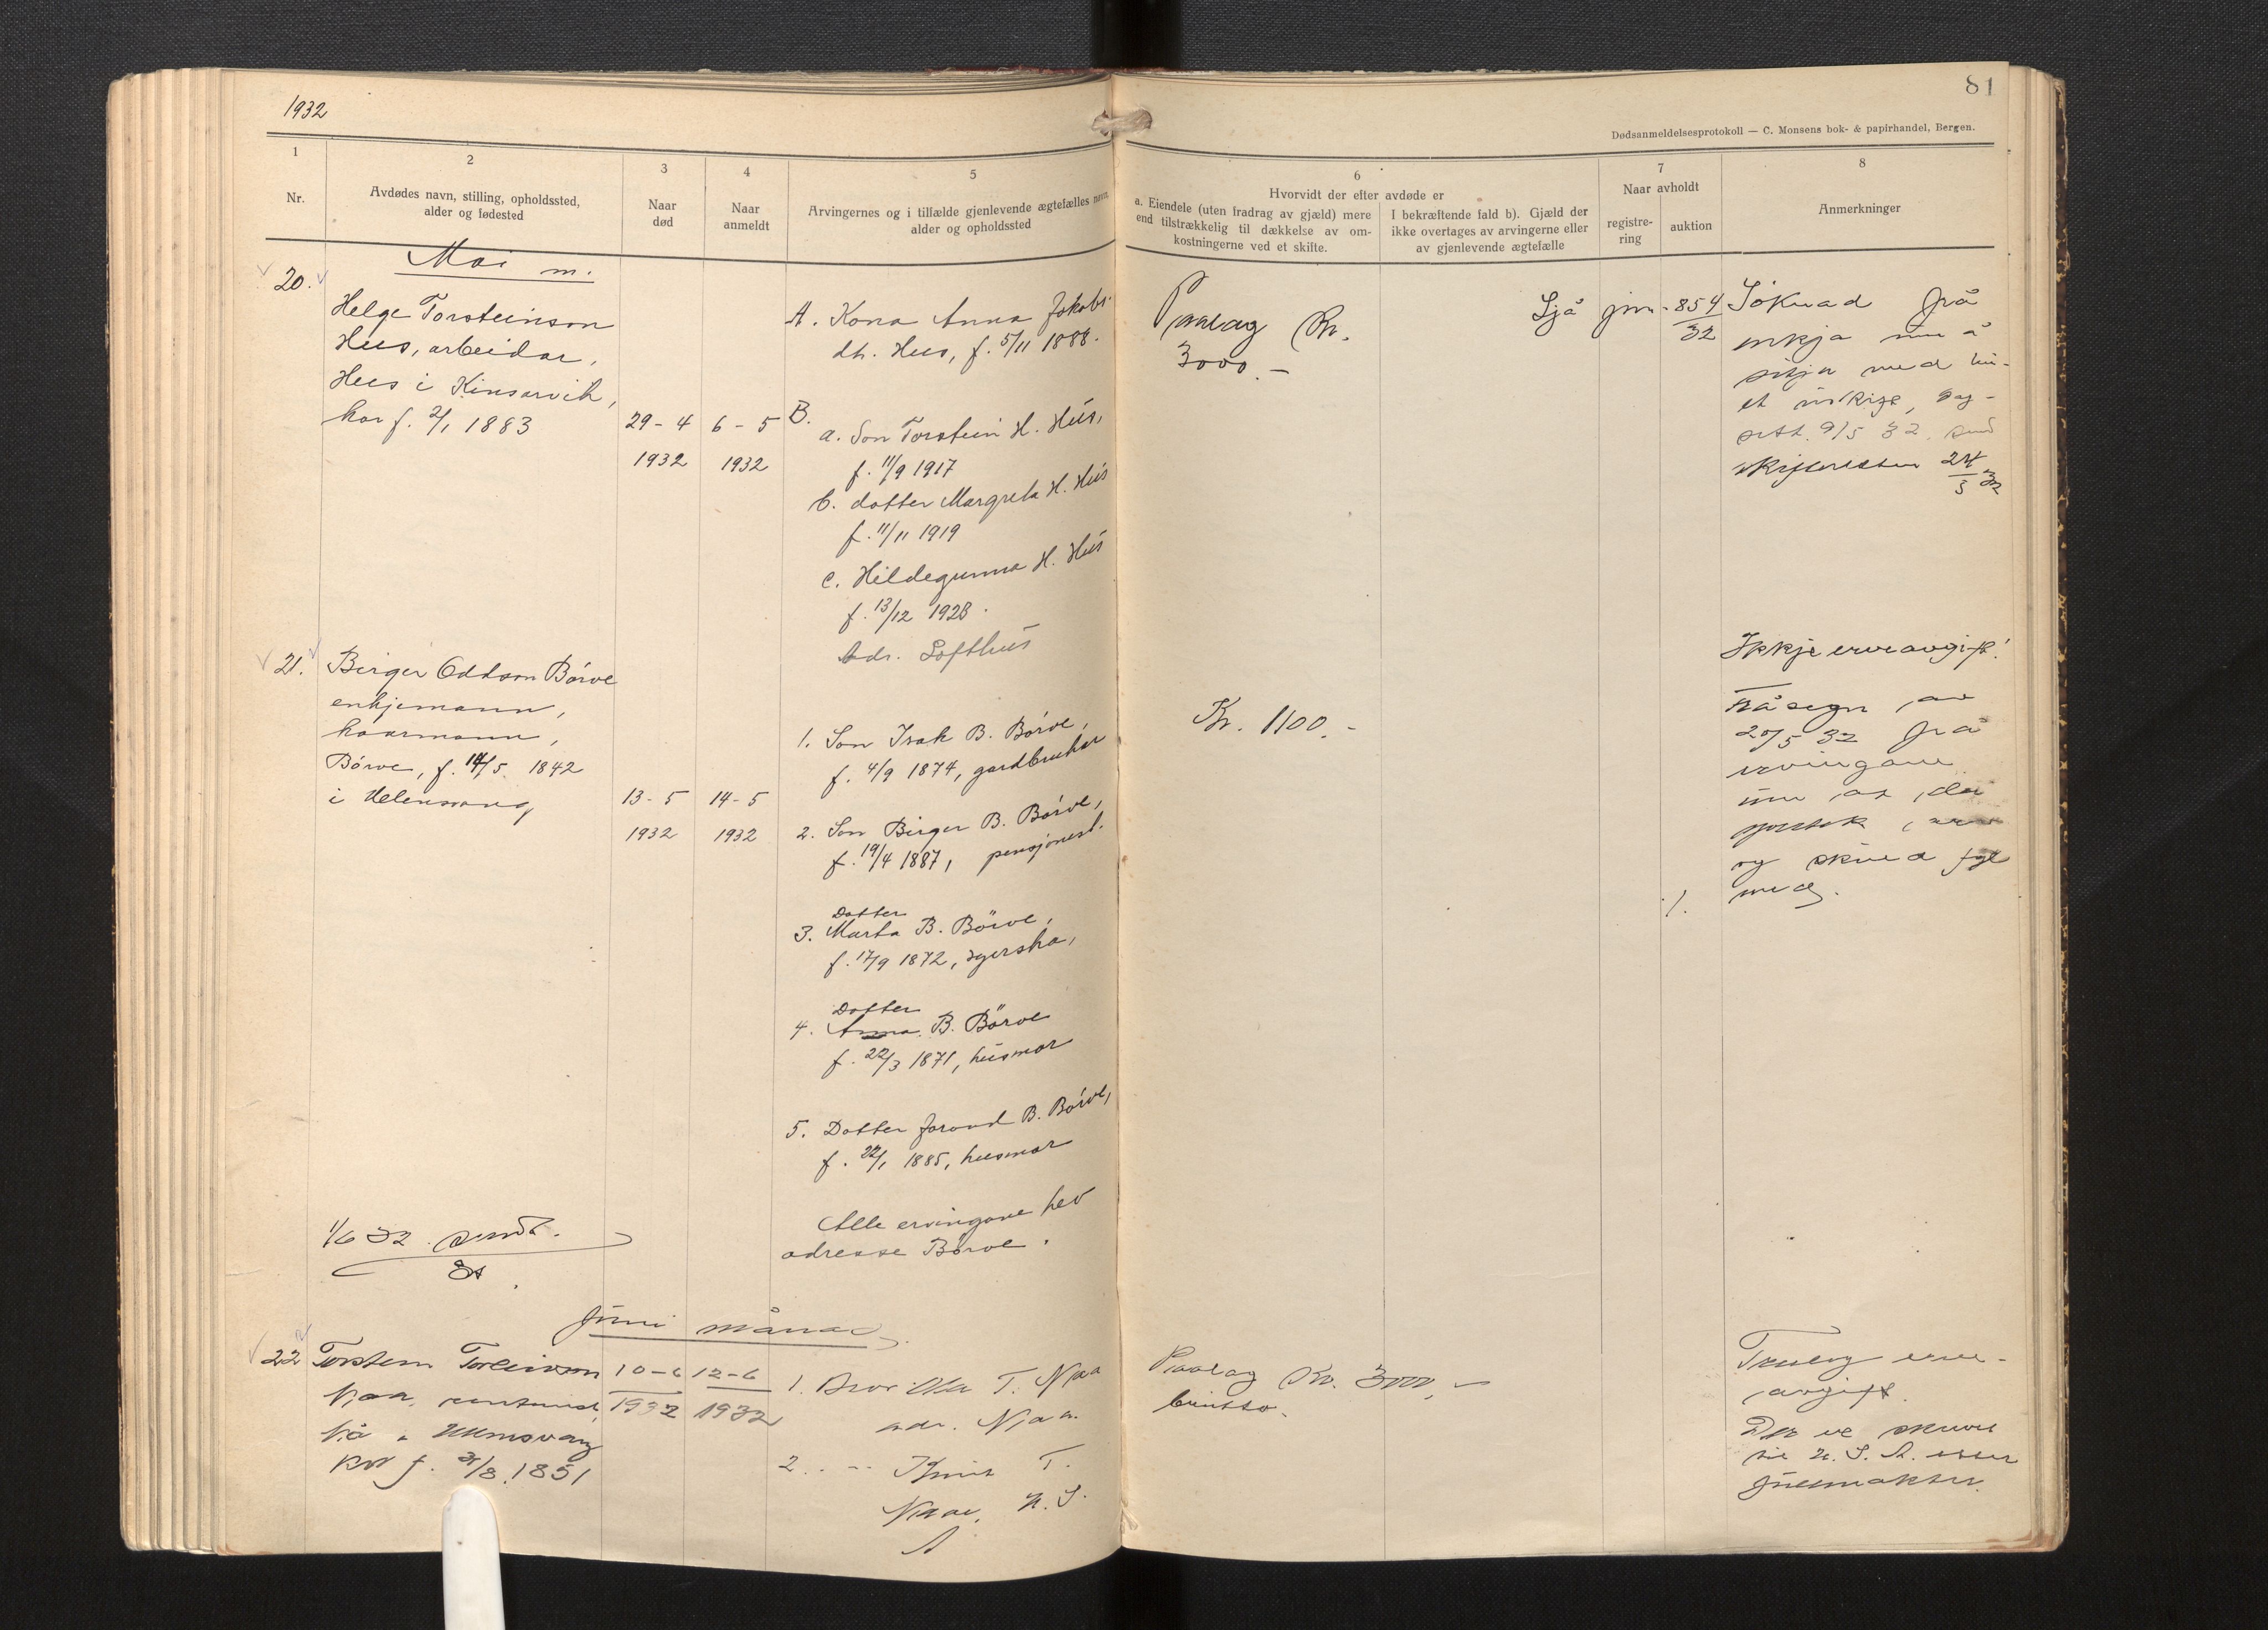 1932
1
2
3
4
5
Nr.
Avdødes navn, stilling, opholdssted,
alder og fødested
Naar
død
Naar
anmeldt
Arvingernes og i tilfælde gjenlevende ægtefælles navn,
alder og opholdssted
Mai m.
20.
Helge Torsteinson
Hus, arbeidar,
Hus i Kinsarvik,
hav f. 2/1 1883
29-4
1932
6-5
1932
A. Kona Anna Jakobs-
dtr. Hus, f. 5/11 1888.
B.
a. Son Torstein H. Hús,
f. 11/9 1917
b. dotter Margreta H. Hús
f. 11/11 1919
c. Hildegunna H. Hús
f. 13/12 1928.
Adr. Lofthús
21.
Birger Oddson Børve
enkjemann,
kaarmann,
Børve, f. 14/5 1842
i Ullensvang
13-5
1932
14-5
1932
1. Son Isak B. Børve,
f. 4/9 1874, gardbrukar
2. Son Birger B. Børve,
f. 19/4 1887, pensjonist.
Dotter
3. Marta B. Børve,
f. 17/9 1872,
Dotter
4. Anna B. Børve
f. 22/3 1871, húsmor
5. Dotter Jorand B. Børve,
f. 22/1 1885, husmor
Alle ervingane hev
adresse Børve.
1/6 32 sendt.
Júni månad
22
Torstein Torleivson
Njaa,
Nå i Ullensvang
f. 31/8 1851
10-6
1932
12-6
1932
1. Bror Ola T. Njaa
adr. Njaa.
2. - Knut T.
Njaa, U. S.
A
81
Dødsanmeldelsesprotokoll — C. Monsens bok- & papirhandel, Bergen.
6
7
8
Hvorvidt der efter avdøde er
a. Eiendele (uten fradrag av gjæld) mere
end tilstrækkelig til dækkelse av om-
kostningerne ved et skifte.
I bekræftende fald b). Gjæld der
ikke overtages av arvingerne eller
av gjenlevende ægtefælle
Naar avholdt
registre-
ring
auktion
Anmerkninger
Paalag Kr.
3000.-
Sjå jnr. 854/32
Søknad frå
enkja um å
sitja med bú-
et uskift,
9/5 32. send
skifteretten 24/5 32
Kr. 1100.-
Ikkje erveavgift!
Fråsegn av
20/5 32 frå
ervingane
um at dei
og skuld
med.
Paalag Kr. 3000.-
brutto.
Truleg erve-
avgift.
U. S. A.
fullmakter.